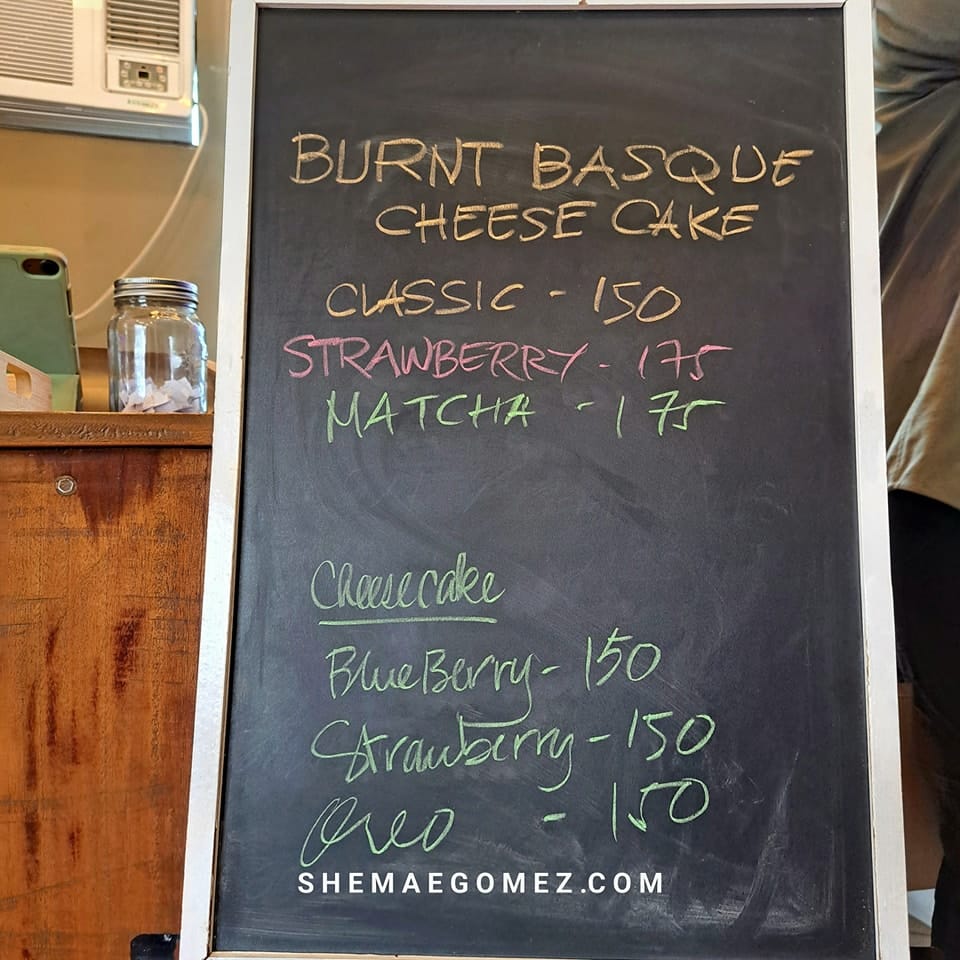 BURNT BASQUE
CHEESE CAKE
CLASSIC - 150
STRAWBERRY - 175
MATCHA - 175
Cheesecake
BlueBerry - 150
Strawberry - 150
Oreo - 150
SHEMAEGOMEZ.COM